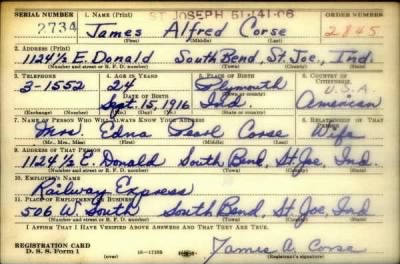 ST JOSEPH 61-141-06
SERIAL NUMBER 1. NAME (Print) ORDER NUMBER
2734 James Alfred Corse 2845
(First) (Middle) (Last)
2. ADDRESS (Print)
1124½ E. Donald South Bend, St. Joe, Ind.
(Number and street or R. F. D. number) (Town) (County) (State)
3. TELEPHONE 4. AGE IN YEARS 5. PLACE OF BIRTH 6. COUNTRY OF CITIZENSHIP
3-1552 24 Plymouth U.S.A.
DATE OF BIRTH (Town or county)
Sept. 15, 1916 Ind. American
(Exchange) (Number) (Mo.) (Day) (Yr.) (State or country)
7. NAME OF PERSON WHO WILL ALWAYS KNOW YOUR ADDRESS 8. RELATIONSHIP OF THAT PERSON
Mrs. Edna Pearl Corse Wife
(Mr., Mrs., Miss) (First) (Middle) (Last)
9. ADDRESS OF THAT PERSON
1124½ E. Donald South Bend, St. Joe, Ind.
(Number and street or R. F. D. number) (Town) (County) (State)
10. EMPLOYER'S NAME
Railway Express
11. PLACE OF EMPLOYMENT OR BUSINESS
506 W. South South Bend, St. Joe, Ind
(Number and street or R. F. D. number) (Town) (County) (State)
I AFFIRM THAT I HAVE VERIFIED ABOVE ANSWERS AND THAT THEY ARE TRUE.
REGISTRATION CARD
D. S. S. Form 1 16-17105 James A. Corse
(Registrant's signature)